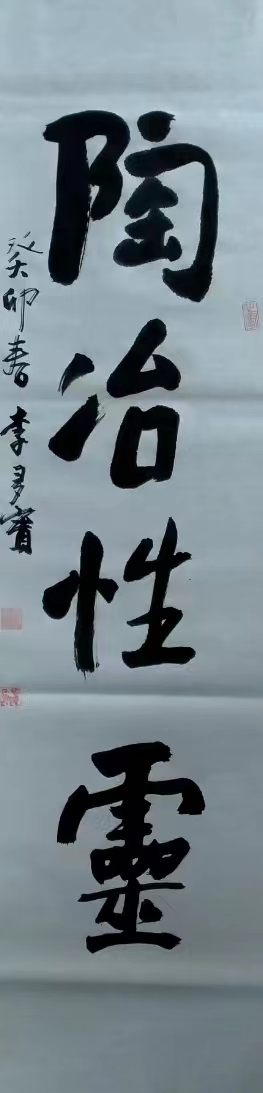 陶冶性靈
癸卯春李多寳